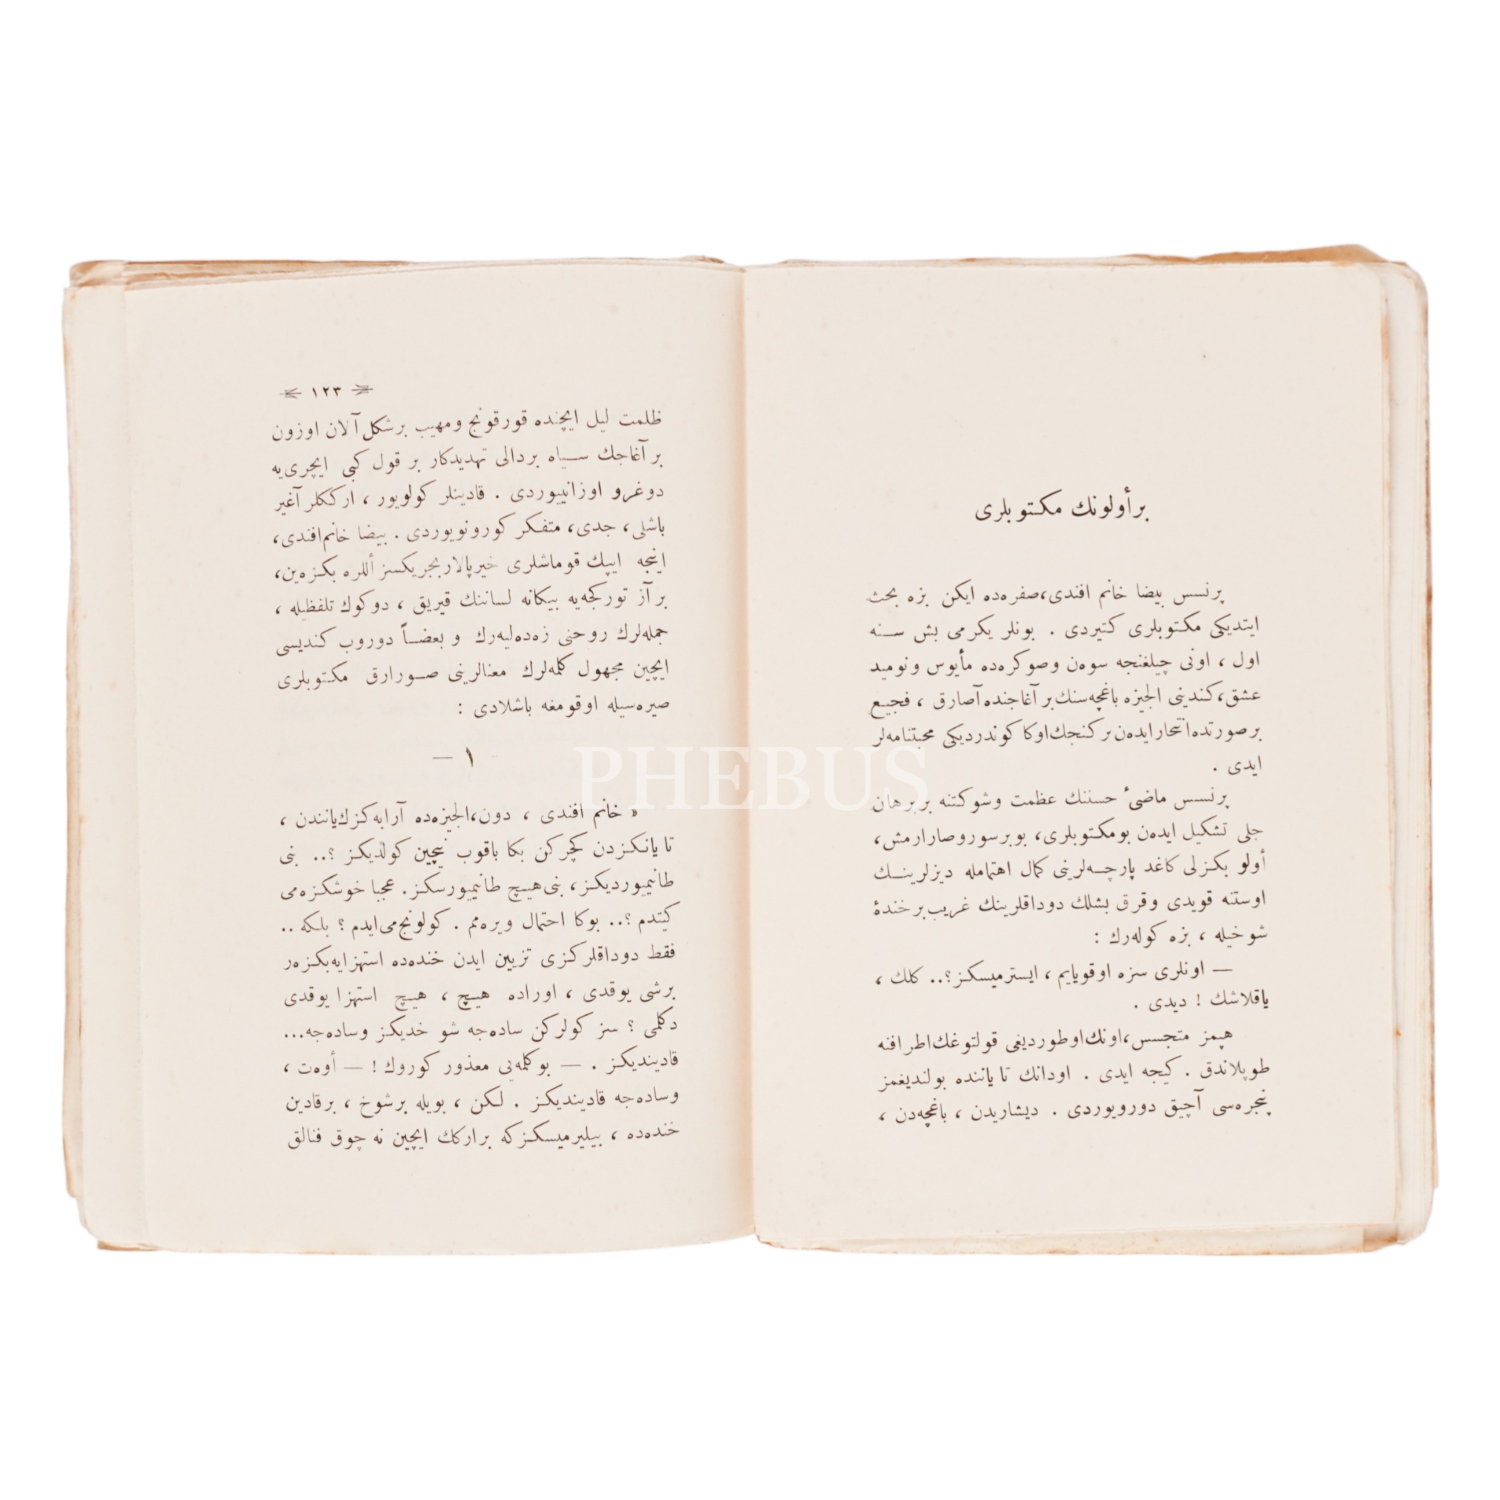 بر أولونك مكتوبلرى
پرنسس بيضا خانم افندى، صفره‌ده ايكن بزه بحث
ايتديكى مكتوبلرى كتيردى . بونلر يكرمى بش سـنه
اول ، اونى چيلغنجه سوه‌ن وصوكره‌ده مأيوس ونوميد
عشق، كندينى الجيزه باغچه‌سنك بر آغاجنده آصارق ، فجيـع
بر صورتده انتحار ايده‌ن بر كنجك اوكا كوندرديكى محبتنامه‌لر
ايدى .
پرنسس ماضىٔ حسننك عظمت وشوكتنه بر برهان
جلى تشكيل ايده‌ن بو مكتوبلرى، بو بر سورو صارارمش،
أولو بكزلى كاغد پارچـه‌لرينى كمال اهتمامله ديزلرينـك
اوستنه قويدى وقرق بشلك دوداقلرينك غريب بر خندهٔ
شوخيله ، بزه كوله‌رك :
— اونلرى سزه اوقويايم ، ايسترميسكز؟.. كلك ،
ياقلاشك ! ديدى .
هپمز متجسس، اونك اوطورديغى قولتوغك اطرافنه
طوپلاندق . كيجه ايدى . اودانك تا ياننده بولنديغمز
پنجره‌سى آچيق دورويوردى . ديشاريدن ، باغچه‌دن ،
١٢٣
ظلمت ليل ايچنده قورقونج ومهيب بر شكل آلان اوزون
بر آغاجك سـياه بر دالى تهديدكار بر قول كبى ايچرى‌يه
دوغرو اوزانييوردى . قادينلر كولويور ، ارككلر آغير
باشلى ، جدى، متفكر كورونويوردى . بيضا خانم افندى،
اينجه ايپك قوماشلرى خيرپالار بجريكسز أللره بكزه‌ين،
بر آز توركجه‌يه بيكانه لساننك قيريق ، دوكوك تلفظيله ،
جمله‌لرك روحنى زه‌ده‌ليه‌رك و بعضـاً دوروب كنديسى
ايچين مجهول كلمه‌لرك معنالرينى صـورارق مكتوبلرى
صيره‌سيله اوقومغه باشلادى :
— ١ —
« خانم افندى ، دون، الجيزه‌ده آرابه‌كزك يانندن ،
تا يانكزدن كچركن بكا باقوب نيچين كولديكز ؟.. بنى
طانيميورديكز ، بنى هيـچ طانيميورسكز . عجبا خوشكزه‌مى
كيتدم ؟.. بوكا احتمال ويره‌مم . كولونج مى‌ايدم ؟ بلـكه ..
فقط دوداقلركزى تزيين ايدن خنده‌ده استهزايه بكزه‌ر
برشى يوقدى ، اوراده هيـچ ، هيـچ استهزا يوقدى
دكلمى ؟ سز كولركن ساده‌جه شو خديكز وساده‌جه...
قادينديكز . — بو كلمه‌يى معذور كوروك ! — أوه‌ت ،
وساده‌جه قادينديكز . لـكن ، بويله بر شوخ ، بر قادين
خنده‌ده ، بيليرميسكز كه بر اركك ايچين نه چوق فنالق
PHEBUS